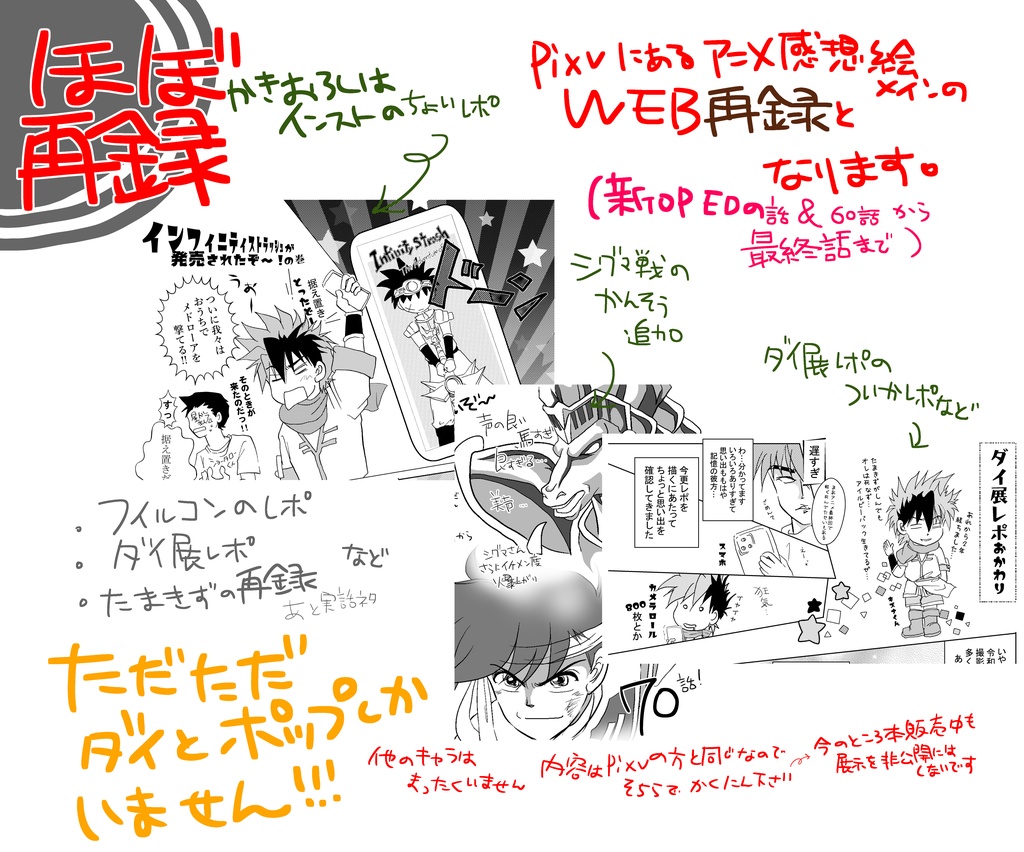 ほぼ
再録
かきおろしは
インストのちょいレポ
Pixivにあるアニメ感想絵
メインの
WEB再録と
なります。
(新TOP EDの話&60話から
最終話まで)
インフィニティストラッシュが
発売されたぞ〜!の巻
ついに我々は
おうちで
メドローアを
撃てる!!
うぉー
据え置き
とったぞー!
Infinity Strash
ドドン
そのときが
来たのだっ!!
すっ
据え置きだ
シグマ戦の
かんそう
追加
ダイ展レポの
ついかレポなど
いぞ〜〜
声の良い
馬すぎ
良すぎる…
美声…
から
シグマさん
さらにイケメン度
爆上がり
遅すぎ
わ…分かってます
いろいろありすぎて
思い出ももはや
記憶の彼方…
今更レポを
描くにあたって
ちょっと思い出を
確認してきました
スマホ
カメラロール
800枚とか
狂気…
ダイ展レポおかわり
あれから2年
経ちました
たまきずがしんでも
オレは死なず…
アイルビーバック生きてるぜ…
キズナくん
いや
令和
撮影
多く
あ
・フィルコンのレポ
・ダイ展レポ など
・たまきずの再録
あと実話ネタ
70話!
ただただ
ダイとポップしか
いません!!!
他のキャラは
まったくいません
内容はPixivの方と同じなので
そちらでかくにん下さい
→今のところ本販売中も
展示を非公開には
しないです